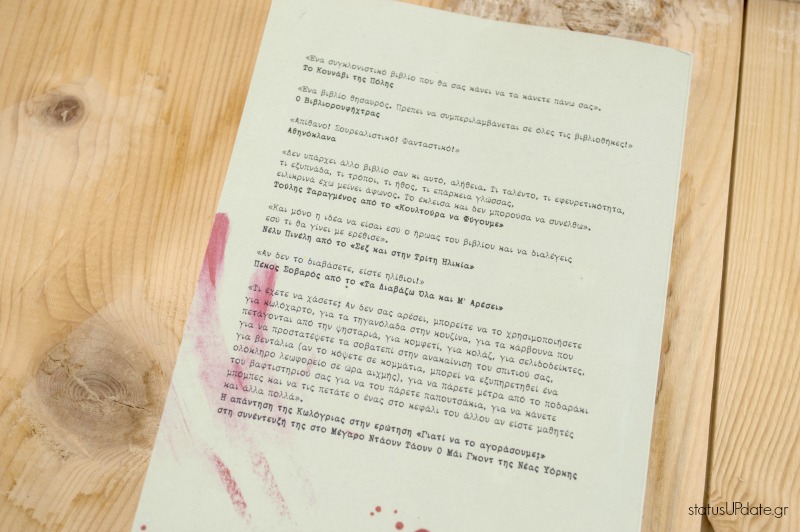 «Ένα συγκλονιστικό βιβλίο που θα σας κάνει να τα κάνετε πάνω σας».
Το Κουνάβι της Πόλης
«Ένα βιβλίο θησαυρός. Πρέπει να συμπεριλαμβάνεται σε όλες τις βιβλιοθήκες!»
Ο Βιβλιορουφήχτρας
«Απίθανο! Σουρεαλιστικό! Φανταστικό!»
Αθηνόκλανα
«Δεν υπάρχει άλλο βιβλίο σαν κι αυτό, αλήθεια. Τι ταλέντο, τι εφευρετικότητα,
τι εξυπνάδα, τι τρόποι, τι ήθος, τι επάρκεια γλώσσας.
Ειλικρινά έχω μείνει άφωνος. Το έκλεισα και δεν μπορούσα να συνέλθω».
Τούλης Ταραγμένος από το «Κουλτούρα να Φύγουμε»
«Και μόνο η ιδέα να είσαι εσύ ο ήρωας του βιβλίου και να διαλέγεις
εσύ τι θα γίνει με ερέθισε».
Νέλυ Πινέλη από το «Σεξ και στην Τρίτη Ηλικία»
«Αν δεν το διαβάσετε, είστε ηλίθιοι!»
Πέκος Σοβαρός από το «Τα Διαβάζω Όλα και Μ' Αρέσει»
«Τι έχετε να χάσετε; Αν δεν σας αρέσει, μπορείτε να το χρησιμοποιήσετε
για κωλόχαρτο, για τα τηγανόλαδα στην κουζίνα, για τα κάρβουνα που
πετάγονται από την ψησταριά, για κομφετί, για κολάζ, για σελιδοδείκτες,
για να προστατέψετε τα σοβατεπί στην ανακαίνιση του σπιτιού σας,
για βεντάλια (αν το κόψετε σε κομμάτια, μπορεί να εξυπηρετηθεί ένα
ολόκληρο λεωφορείο σε ώρα αιχμής), για να πάρετε μέτρα από το ποδαράκι
του βαφτιστηριού σας για να του πάρετε παπουτσάκια, για να κάνετε
μπόμπες και να τις πετάτε ο ένας στο κεφάλι του άλλου αν είστε μαθητές
και άλλα πολλά».
Η απάντηση της Κωλόγριας στην ερώτηση «Γιατί να το αγοράσουμε;»
στη συνέντευξή της στο Μέγαρο Ντάουν Τάουν Ο Μάι Γκοντ της Νέας Υόρκης
statusUPdate.gr